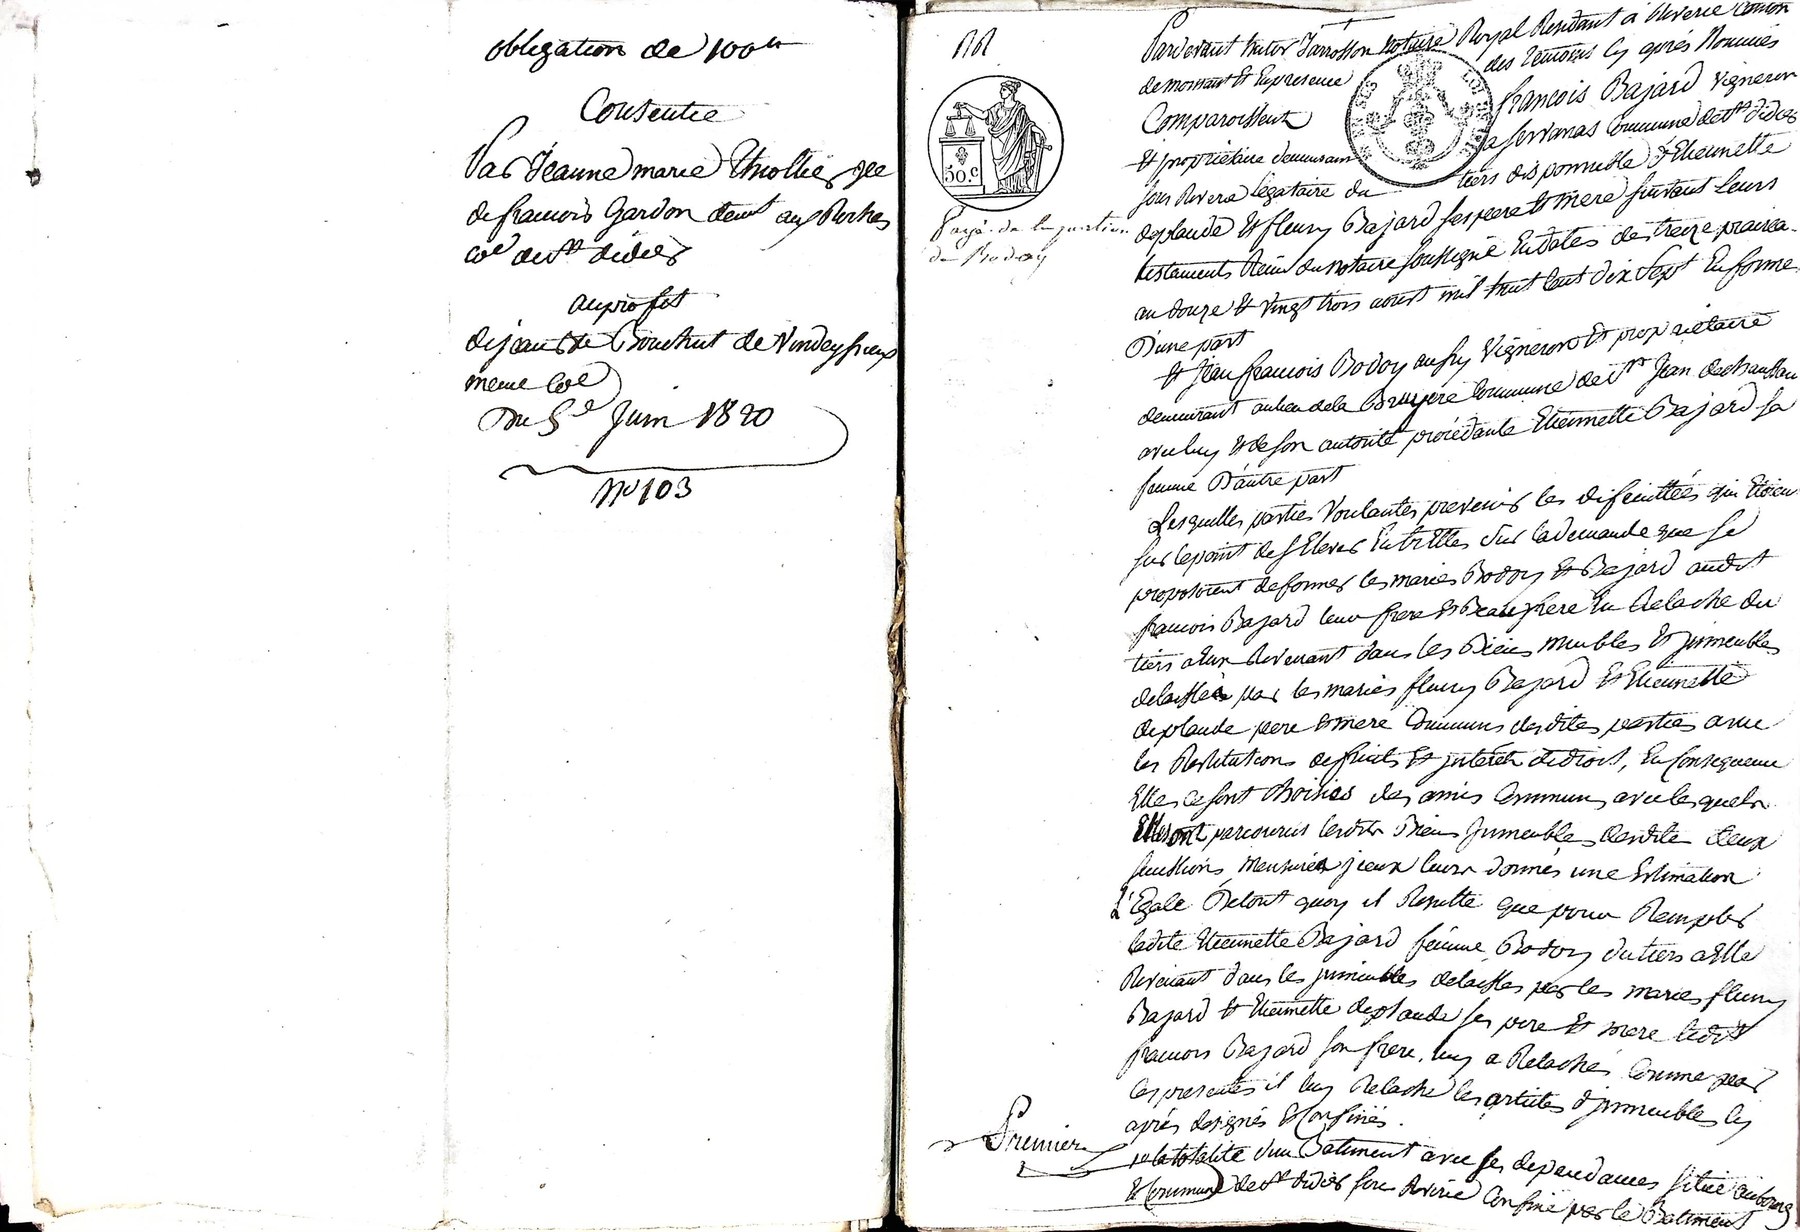 obligation de 100ll
Consentie
Par Jeanne marie Thollier vee
de francois Gardon demt aux Roches
coe de st didier
au profit
de jean Bouchut de Vindeyfrieux
meme Coe
Du 5e Juin 1820
No 103
50.c
Payé de la portion
de Bodoy
Pardevant Notaire Royal Residant a Riverie Canton
de mornant Et En presence des temoins Cy aprés Nommés
Comparoissent francois Bajard vigneron
Et propriétaire demeurant a Commune de st didier
sous Riverie legataire du tiers disponnible d'Etiennette
deplaude Et fleury Bajard ses pere Et mere suivant leurs
testaments Reçu du notaire soussigné En dates des treize prairial
an douze Et vingt trois aoust mil huit Cent dix Sept En forme
D'une part
Et Jean francois Bodoy aussy Vigneron Et propriétaire
demeurant au lieu de la Bruyere Commune de st Jean de chaussan
avec luy Et de son autorité procédante Etiennette Bajard sa
femme D'autre part
Lesquelles parties Voulantes prevenir les dificultées qui Etoient
sur le point de s'Elever Entr'Elles sur la demande que se
proposoient de former les mariés Bodoy Et Bajard audit
francois Bajard leur frere Et Beaufrere En Relache du
tiers a Eux Revenant dans les Biens meubles Et jmmeubles
delaissés par les mariés fleury Bajard Et Etiennette
deplaude pere Et mere Communs desdites parties avec
les Restitutions de fruits Et jnteréts de droit, En Consequence
Elles se sont Choisies des amis Communs avec lesquels
Elles ont parcourus lesdits Biens jmmeubles desdites deux
successions, mesurés jceux leurs donnés une Estimation
L'Egale De tout quoy il Resulte que pour Remplir
ladite Etiennette Bajard femme Bodoy du tiers a Elle
Revenant dans les jmmeubles delaissés par les mariés fleury
Bajard Et Etiennette deplaude ses pere Et mere ledit
francois Bajard son frere, luy a Relaché Comme par
les presentes il luy Relache les articles d'jmmeubles Cy
aprés designés Et Confinés.
Premier
1o la totalité d'un Batiment avec ses dependances situé au bourg
Et Commune de st didier sous Riverie Confiné par le Batiment